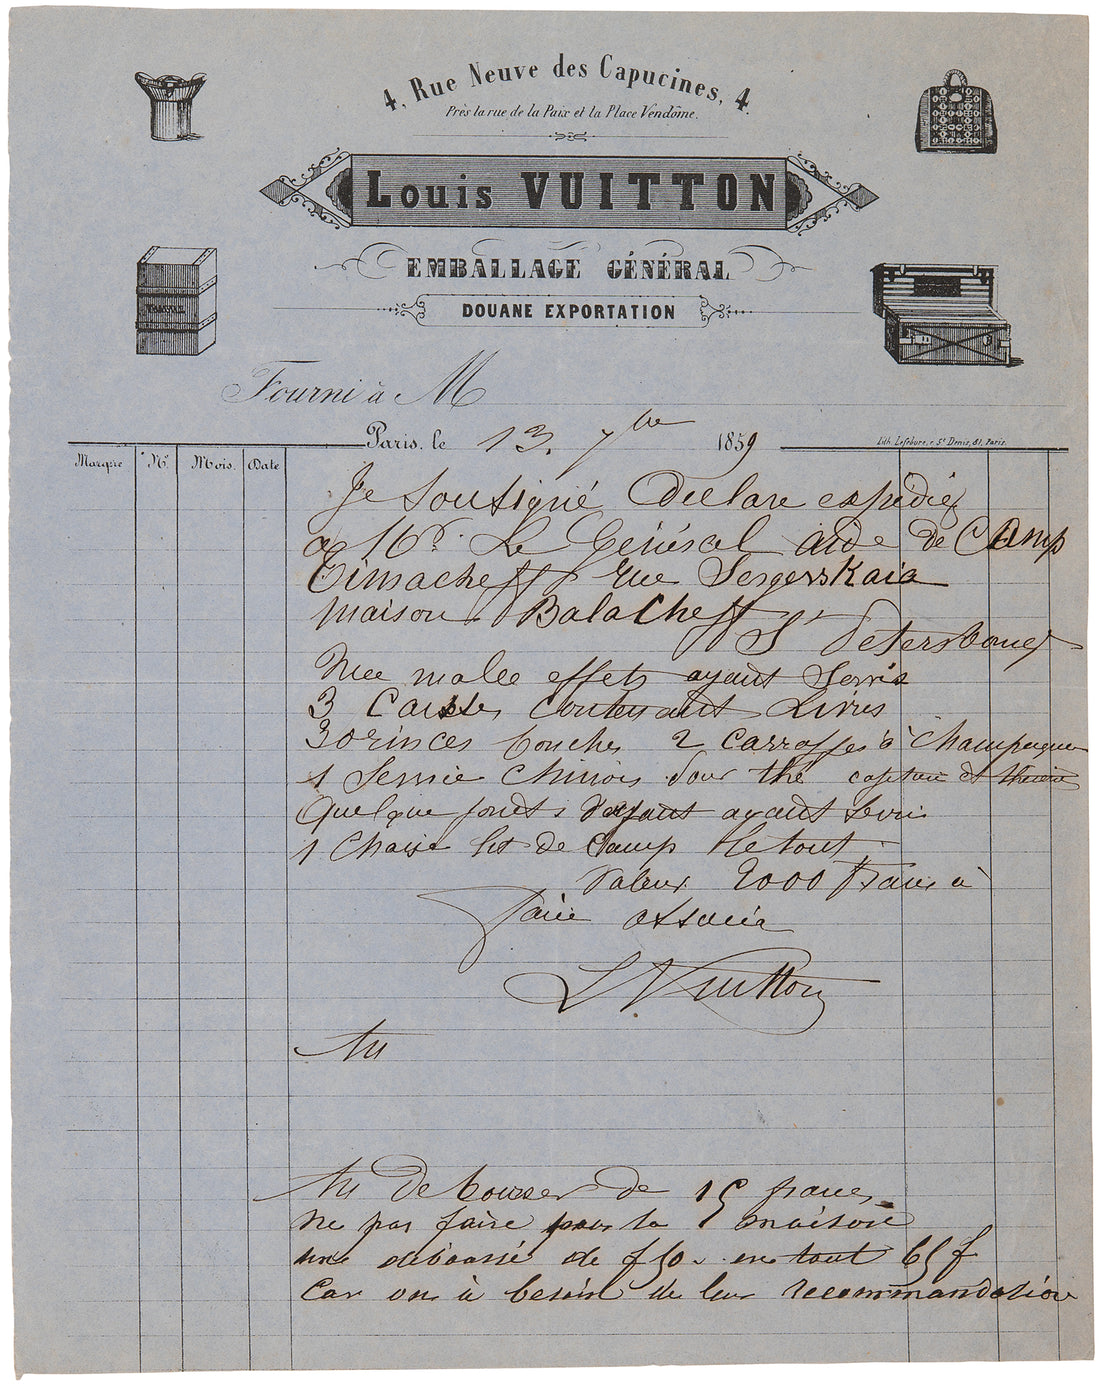 4, Rue Neuve des Capucines, 4.
Près la rue de la Paix et la Place Vendôme.
Louis VUITTON
EMBALLAGE GÉNÉRAL
DOUANE EXPORTATION
Fourni à M
Paris, le 13. 7bre 1859
Lith. Lefébure, r. St Denis, 81, Paris.
Marque Nos. Mois. Date
Je Soutigné Déclare expédié
a Mr. Le Général aide de Camp
Timacheff rue Sergerskaia
maison Balacheff
St Petersbourg
Une malle effets ayant Servis
3 Caisses Contenant Livres
30 rinces bouches 2 carraffes à Champagne
1 Servie Chinois pour thé et
Quelque ayant Servi
1 Chaise lit de Camp Le tout
Valeur 2000 Francs à
faire assurer
L Vuitton
Au
Au Debourser de 15 francs
ne pas faire pour la maison
une déboursé de f 50. en tout 65 f
Car on à besoin de leur recommandation